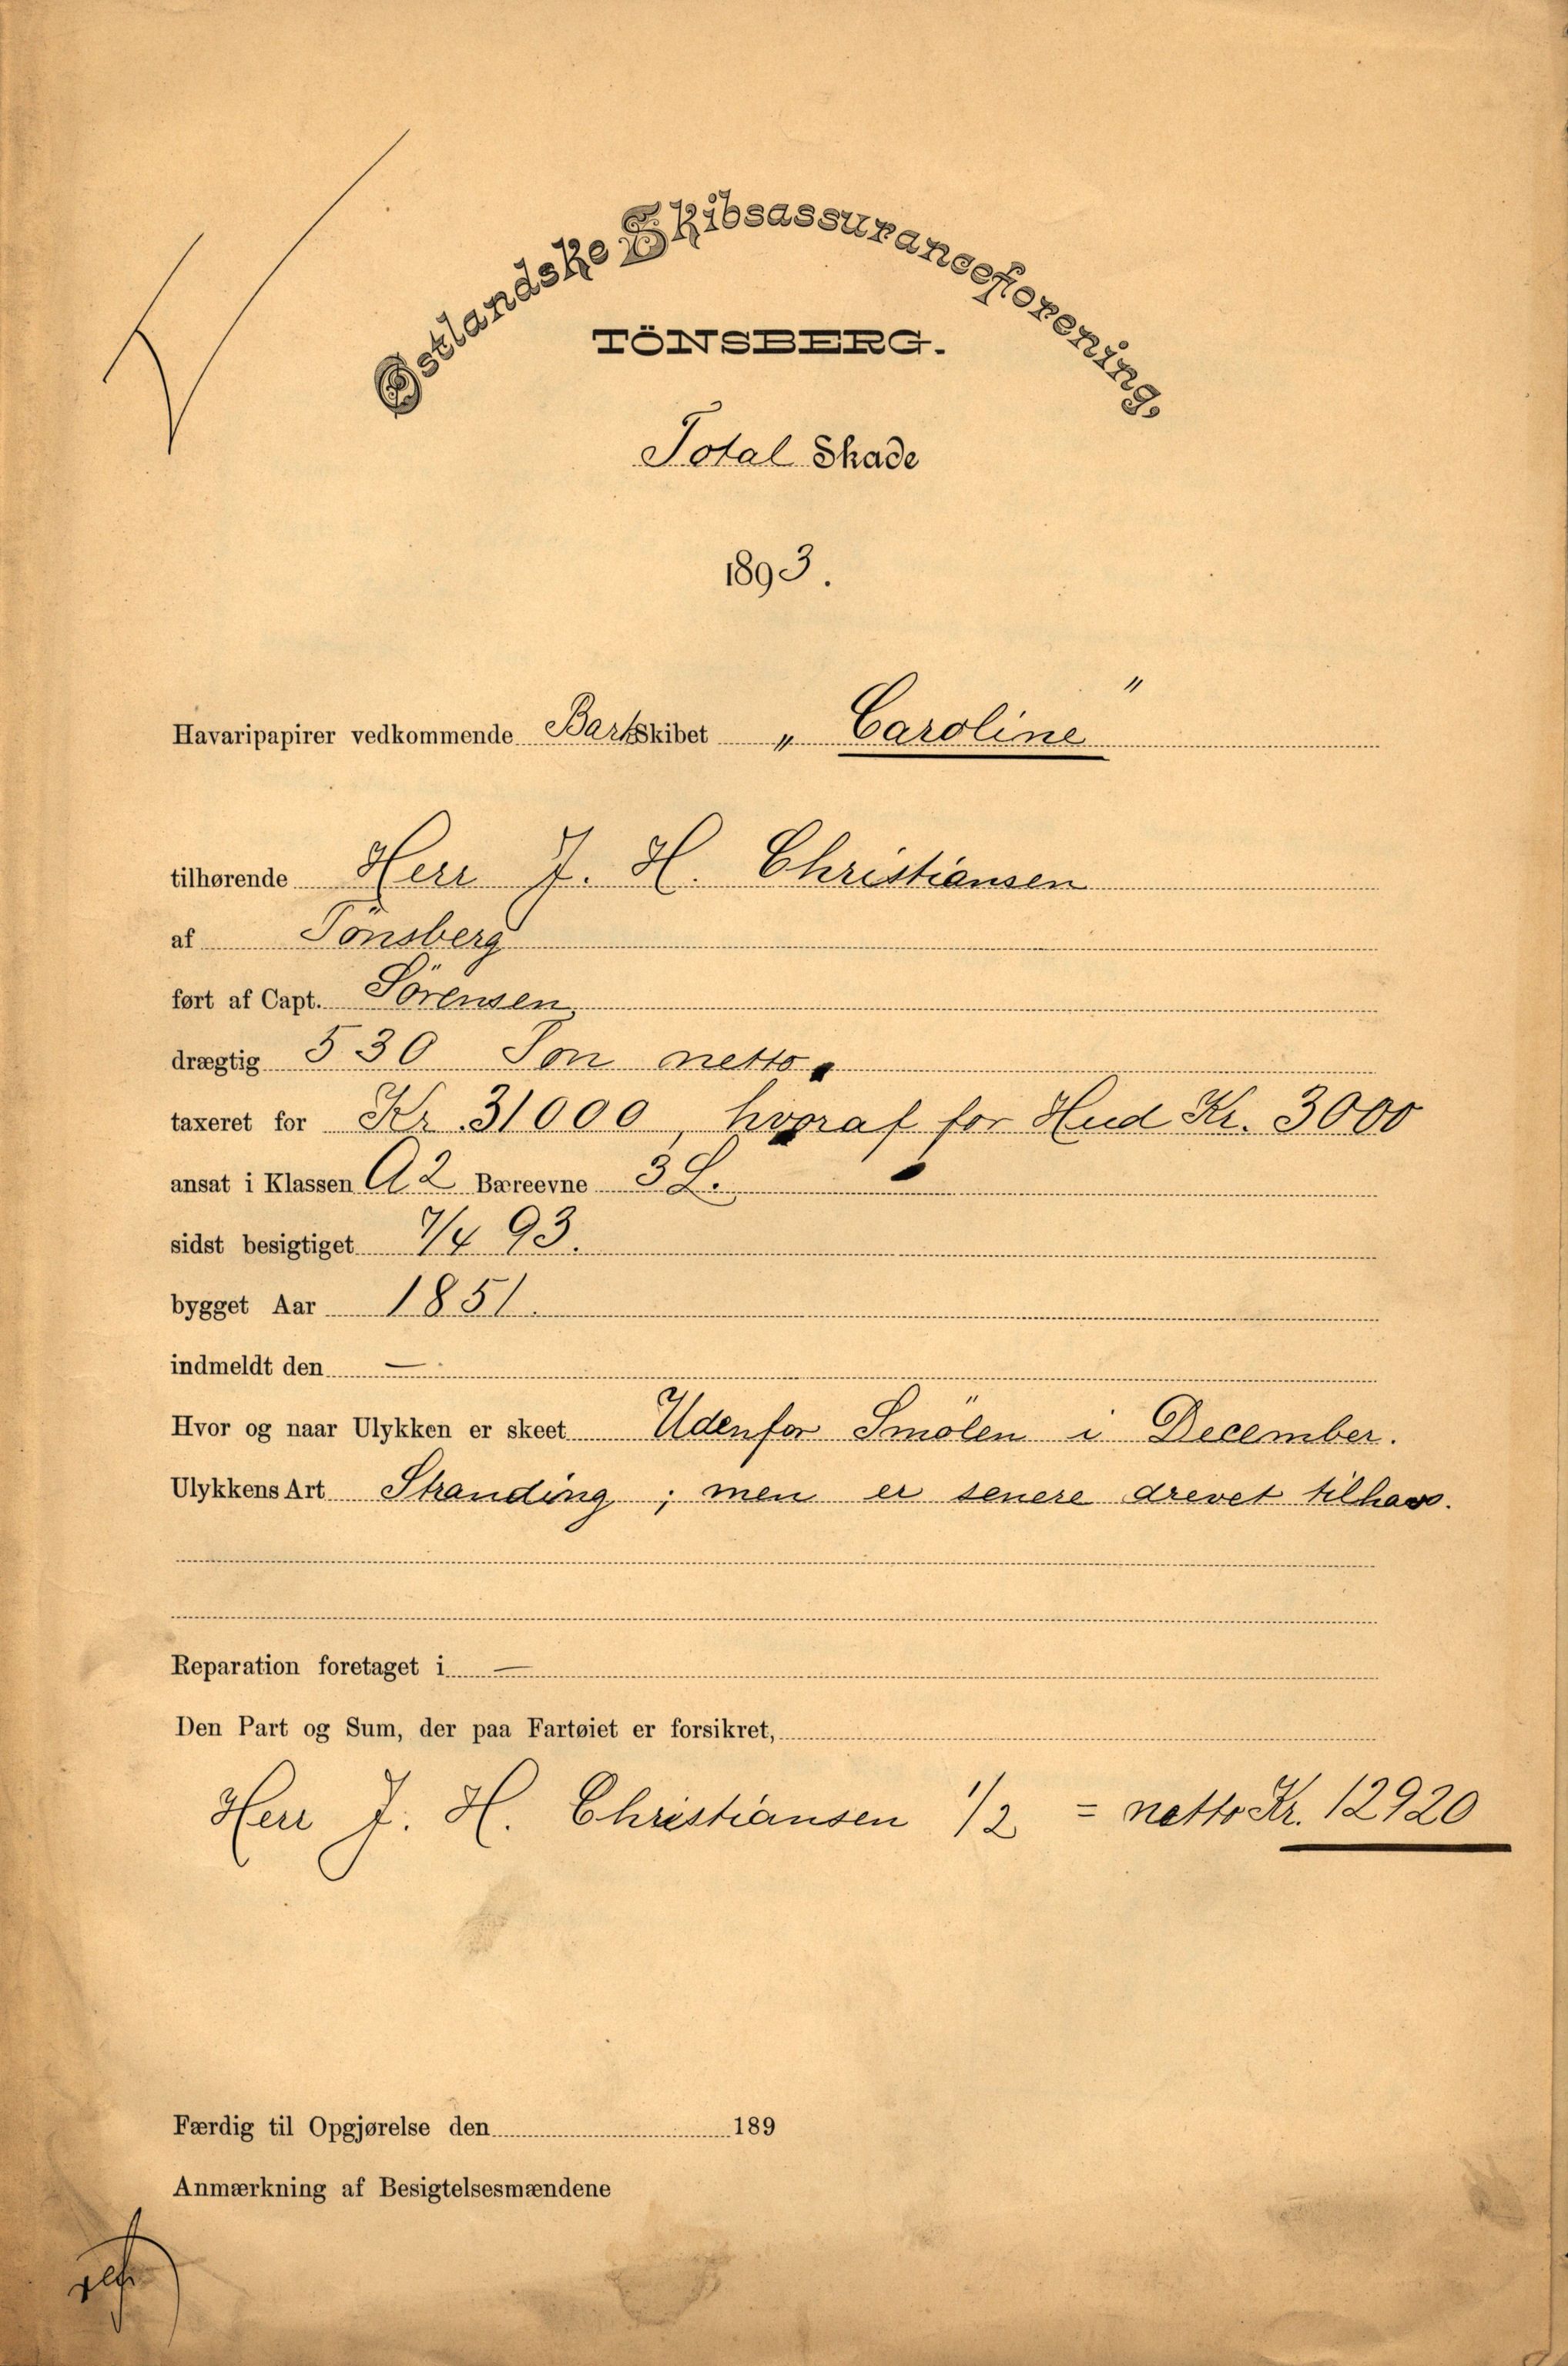 Østlandske Skibsassuranceforening,
TÖNSBERG.
Total Skade
1893.
Havaripapirer vedkommende BarkSkibet „ Caroline "
tilhørende Herr J. H. Christiansen
af Tönsberg
ført af Capt. Sörensen
drægtig 530 Ton netto.
taxeret for Kr. 31000, hvoraf for Hud Kr. 3000
ansat i Klassen A2 Bæreevne 3 L.
sidst besigtiget 7/4 93.
bygget Aar 1851.
indmeldt den —
Hvor og naar Ulykken er skeet Udenfor Smölen i December.
Ulykkens Art Stranding; men er senere drevet tilhavs.
Reparation foretaget i —
Den Part og Sum, der paa Fartøiet er forsikret,
Herr J. H. Christiansen 1/2 = netto Kr. 12920
Færdig til Opgjørelse den 189
Anmærkning af Besigtelsesmændene